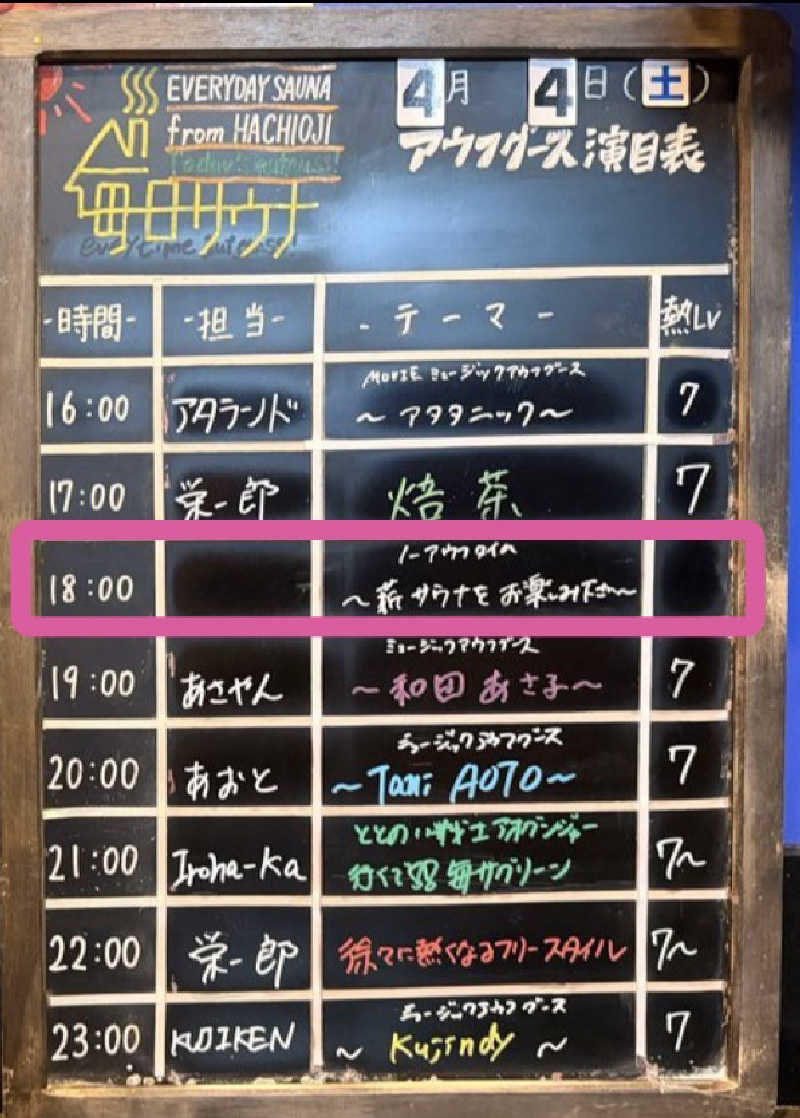 EVERYDAY SAUNA
from HACHIOJI
Today's aufguss!
毎日サウナ
everytime aufguss!
4月 4日(土)
アウフグース演目表
-時間- -担当- -テーマ- 熱LV
16:00 アタランド MOVIE ミュージックアウフグース 7
~アタタニック~
17:00 栄一郎 焙茶 7
18:00 ノーアウフタイム
~薪サウナをお楽しみ下さい~
19:00 あさやん ミュージックアウフグース 7
~和田あさ子~
20:00 あおと ミュージックアウフグース 7
~Tomi AOTO~
21:00 Iroha-Ka ととのい戦士アオグンジャー 7~
行くて 毎サグリーン
22:00 栄一郎 徐々に熱くなるフリースタイル 7~
23:00 KUJIKEN ミュージックアウフグース 7
~ Kujindy ~